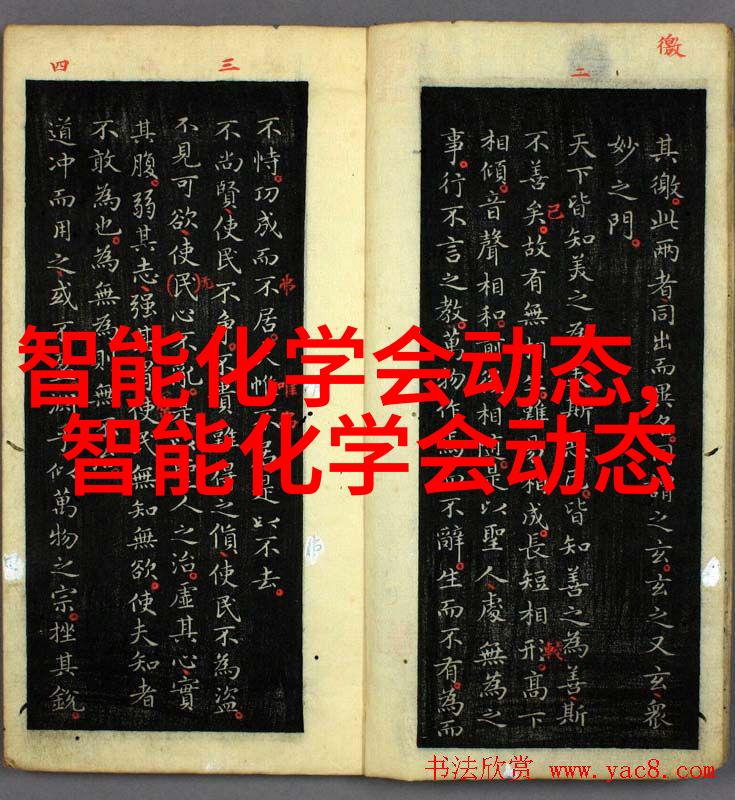 徼
二
其徼。此兩者同出而異名。謂之玄。玄之又玄。衆
妙之門。
天下皆知美之斯皆知善之為善斯
不善矣。故有無相成。長短相形。高下
已
相傾。音聲相和。相是以聖人處無為之
事。行不言之教。萬物作焉而不辭。生而不有。為而
三
四
不恃。功成而不居。不居是以不去。
不尚賢。使民不爭。不貴難得之貨。使民不為盜。
不見可欲。使(民)心不亂。人之治。虛其心。實
无
其腹。弱其志。强其使民無知無欲。使夫知者
不敢為也。為無為。則無
道冲而用之。或不似萬物之宗。挫其銳。
智能化学会动态,
智能化学会动态
书法欣赏 www.yac8.com